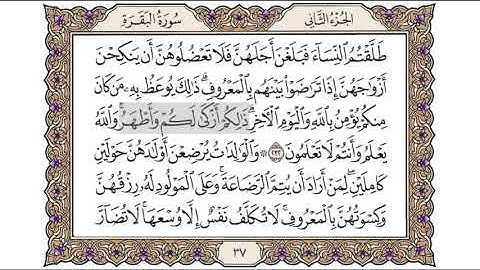 الجزء الثاني
سورة البقرة
طَلَّقْتُمُ ٱلنِّسَآءَ فَبَلَغْنَ أَجَلَهُنَّ فَلَا تَعْضُلُوهُنَّ أَن يَنكِحْنَ
أَزْوَٰجَهُنَّ إِذَا تَرَٰضَوْا۟ بَيْنَهُم بِٱلْمَعْرُوفِ ۗ ذَٰلِكَ يُوعَظُ بِهِۦ مَن كَانَ
مِنكُمْ يُؤْمِنُ بِٱللَّهِ وَٱلْيَوْمِ ٱلْءَاخِرِ ۗ ذَٰلِكُمْ أَزْكَىٰ لَكُمْ وَأَطْهَرُ ۗ وَٱللَّهُ
يَعْلَمُ وَأَنتُمْ لَا تَعْلَمُونَ ٢٣٢ ۞ وَٱلْوَٰلِدَٰتُ يُرْضِعْنَ أَوْلَٰدَهُنَّ حَوْلَيْنِ
كَامِلَيْنِ ۖ لِمَنْ أَرَادَ أَن يُتِمَّ ٱلرَّضَاعَةَ ۚ وَعَلَى ٱلْمَوْلُودِ لَهُۥ رِزْقُهُنَّ
وَكِسْوَتُهُنَّ بِٱلْمَعْرُوفِ ۚ لَا تُكَلَّفُ نَفْسٌ إِلَّا وُسْعَهَا ۚ لَا تُضَآرَّ
٣٧